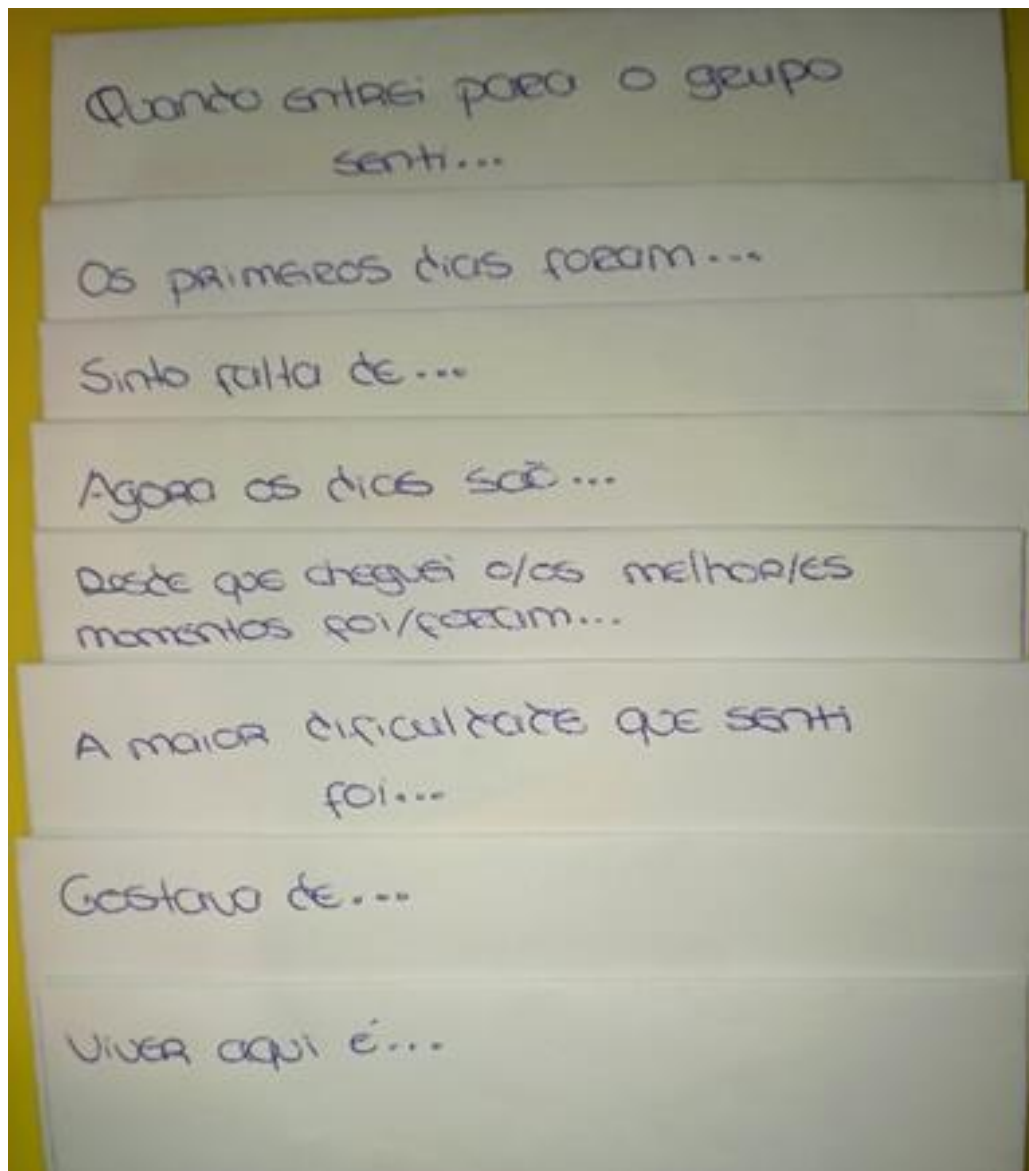 Quando entrei para o grupo
senti...
Os primeiros dias foram...
Sinto falta de...
Agora os dias são...
Desde que cheguei o/os melhor/es
momentos foi/foram...
A maior dificuldade que senti
foi...
Gostava de....
Viver aqui é...